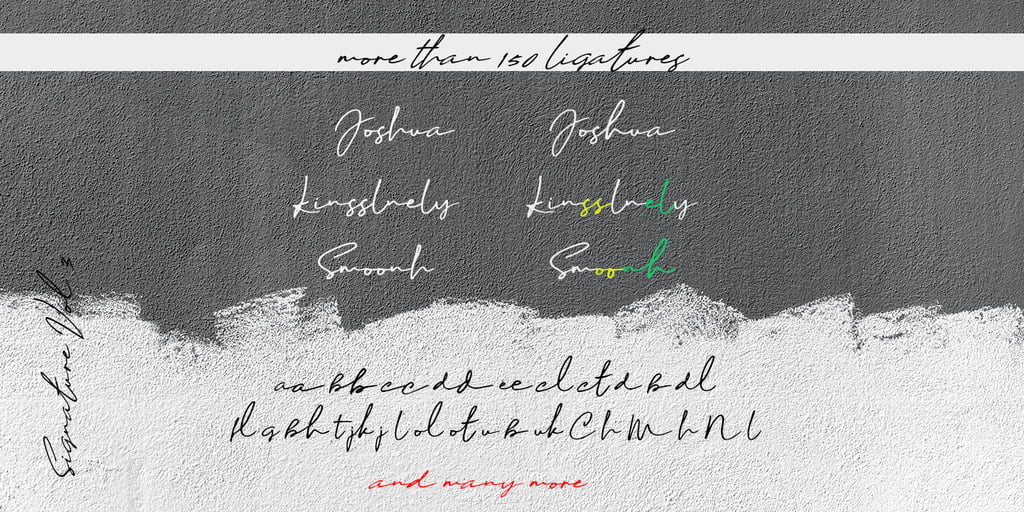 more than 150 ligatures
Joshua Joshua
Kinsslnely Kinsslnely
Smoonh Smoonh
Signature Vol 3
aa bb cc dd ee cl ct d b dl
and many more